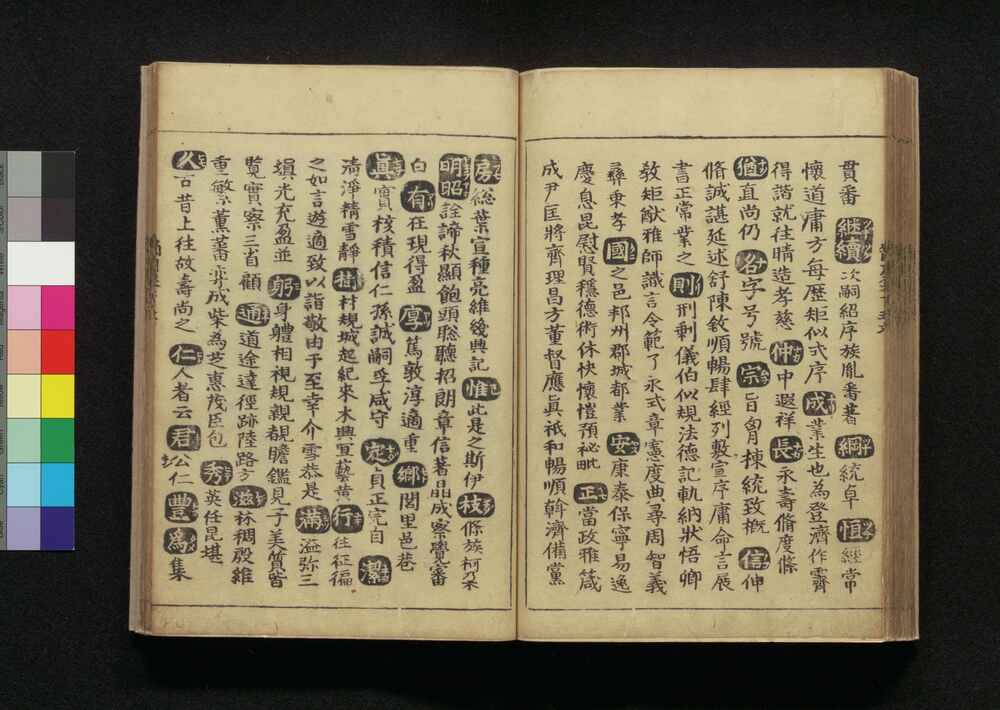 貫番 継續 次嗣紹序族胤番著 綱 統卓 恒 經常
懷道庸方每歷矩似弍序 成 業生也為登濟作霽
得諧就往晴造孝慈 仲 中遐祥 長 永壽脩度條
猶 直尚仍 名 字号號 宗 旨胄揀統致概 信 伸
脩誠諶延述舒陳敘順暢肆經列數宣序庸命言展
書正常業之 則 刑剩儀伯似規法德記軌納狀悟卿
教矩猷雅師識言令範了永式章憲度曲尋周智義
彝秉孝 國 之邑邦州郡城都業 安 康泰保寧易逸
慶息昆慰賢穩德術休快懷愷預祕毗 正 當政雅箴
成尹匡將齊理昌方董督應眞祇和暢順幹濟備黨
房 総葉宣種亮維後典記 惟 此是之斯伊 枝 條族柯朶
明昭 詮諦秋顯飽頭聡聽招朗章信著晶成察覺審
白 有 在現得盈 厚 篤敦淳適重 鄉 閭里邑巷
眞 實核積信仁孫誠嗣孚咸守 定 貞正完自 潔
清淨精雪靜 樹 村規城起紀來木興亘藝黄 行 往征徧
之如言遊適致以詣敬由于至幸介雪恭是 滿 溢弥三
塡光充盈並 躬 身體相視規親覩瞻鑑見子美質皆
覧實察三省顧 通 道途達徑跡陸路方 滋 林稠殷維
重繁薫蕃弈成柴為芝惠茂臣包 秀 英任昆堪
久 古昔上往故壽尚之 仁 人者云 君 公仁 豊為 集